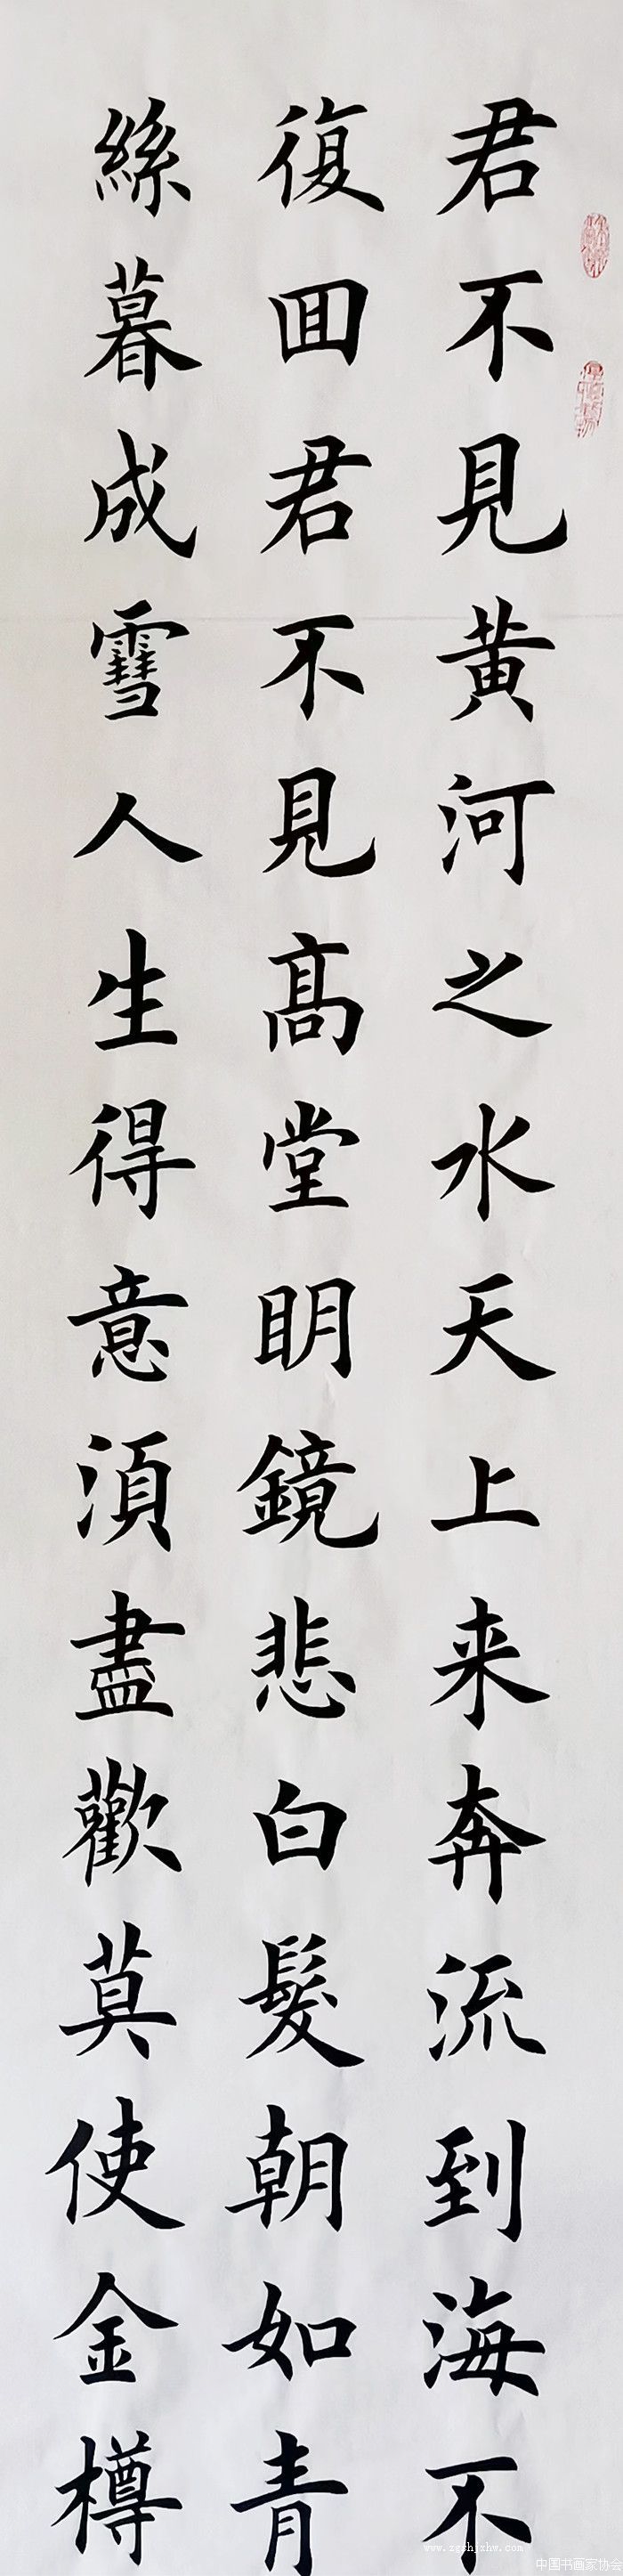 君不見黄河之水天上来奔流到海不
復回君不見高堂明鏡悲白髮朝如青
絲暮成雪人生得意須盡歡莫使金樽
www.zgshjxhw.com
中国书画家协会